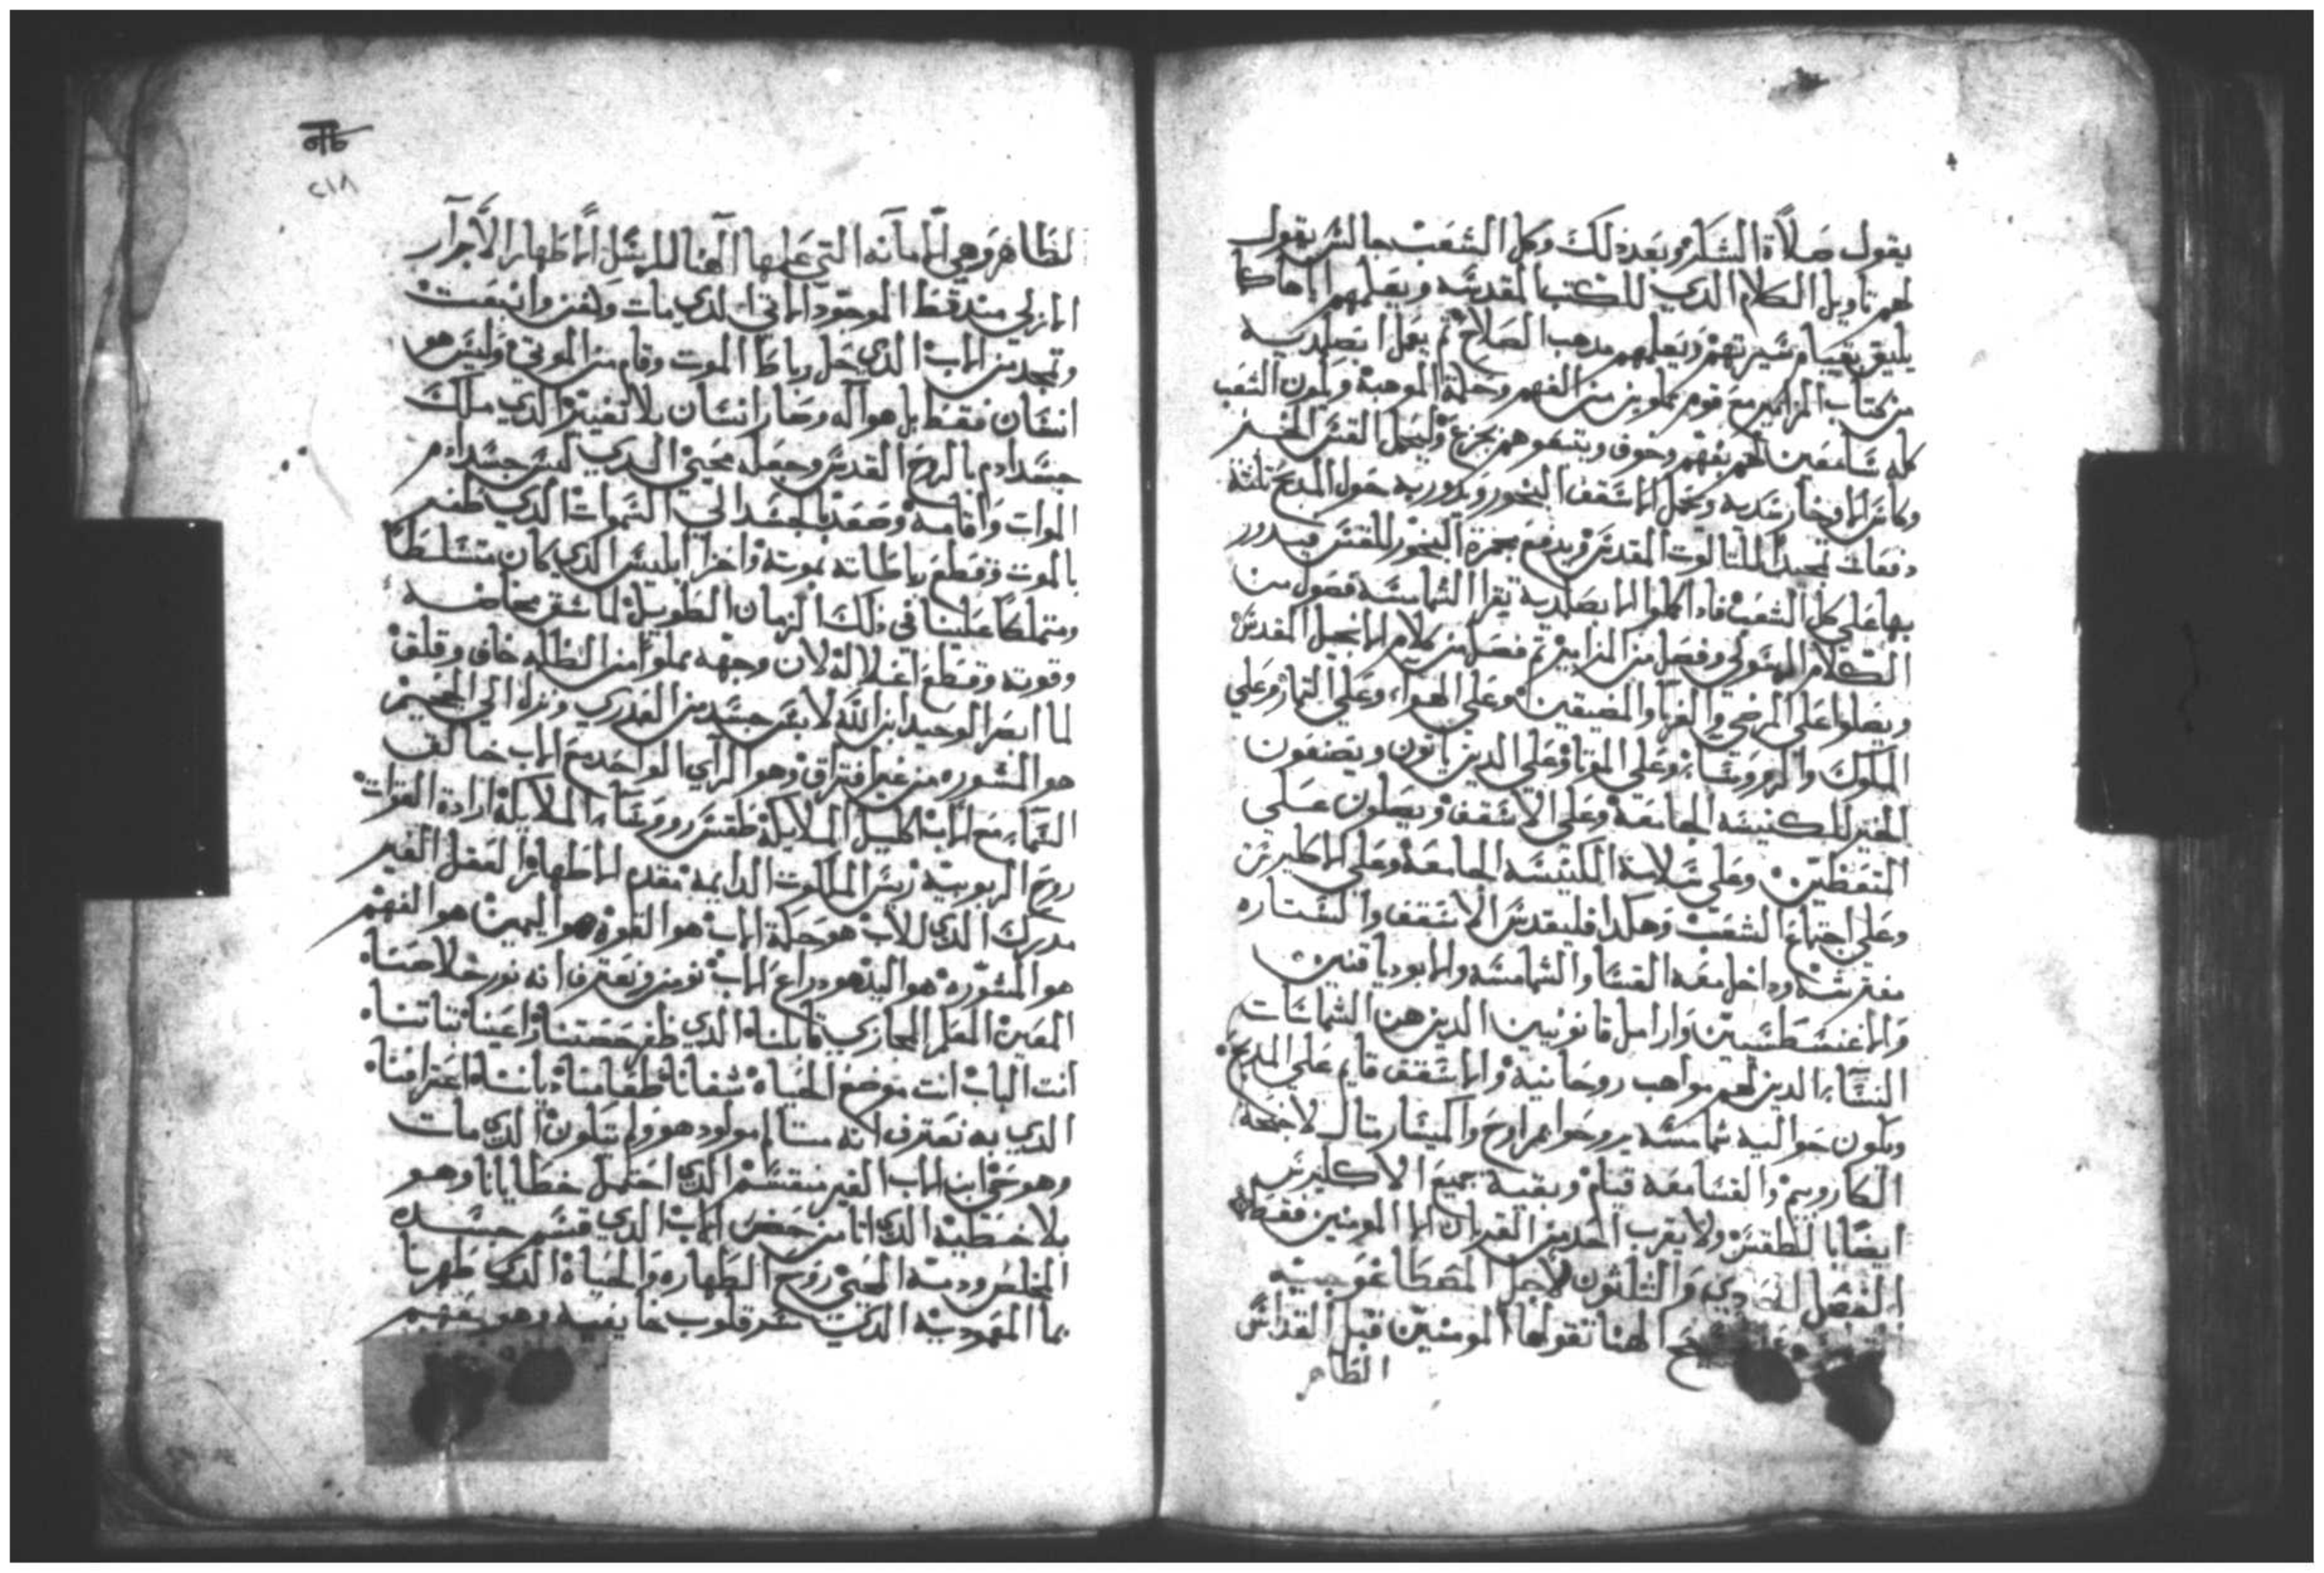 يقول صلاة الشكر وبعد ذلك وكل الشعب جالس يقول
لهم تاويل الكلام الذي للكتب المقدسه ويعلمهم اياها كما
يليق بقيام سيرتهم ويعلمهم مذهب الصلاح ثم يعمل ابصلديه
من كتاب المزامير مع قوم مملوين من الفهم وحكمة الموهبة ويكون الشعب
كله سامعين لهم بفهم وخوف ويتبعوهم بجزع وليحمل القس الخبز
وكاس الاوخارستديه ويحمل الاسقف البخور ويدور به حول المذبح ثلثة
دفعات تمجيدا للثالوت المقدس ويدفع مجمرة البخور للقس فيدور
بها على كل الشعب فاذا كملوا الابصلديه تقرا الشمامسه فصول من
الكلام الرسولي وفصل من المزامير ثم فصل من كلام الانجيل المقدس
ويصلوا على المرضي والغربا والمضيقين وعلى الهواء وعلى الثمار وعلي
الملوك والروروسا وعلى الموتا وعلى الدين ياتون ويصنعون
الخير للكنيسه الجامعة وعلى الاسقف ويصلون على
المتعظين وعلى سلامة الكنيسه الجامعة وعلى الاكليرس
وعلى اجتماع الشعب وهكذا فليقدس الاسقف والستاره
مفترشه وداخل معه القسا والشمامسه والابودياقنين
والاغنسطسيين وارامل قانونيين الدين هن الشماسات
النساء الدين لهم مواهب روحانيه والاسقف قايم على المدبح
ويكون حواليه شمامسه يروحوا بمراوح واكسار مثال لاجنحة
الكاروبيم والقسا معه قيام وبقية جميع الاكليرس
ايضا بالطقس ولا يقرب احد من القربان الا المومنين فقط
الفصل الحادي والثلثون لاجل المصطاغوجيه
المسيح الهنا تقولها المومنين قبل القداس
الطاهر
٢١٨
لطاهر وهي الامانه التي علمها الهنا للرسل الاطهار الاحرار
الازلي مند قط الموجود الاتي الدي مات ودفن وانبعت
وتمجد من الاب الذي حل رباط الموت وقام من الموتي وليس هو
انسان فقط بل هو اله وصار انسان بلا تغيير الذي ملك
جسد ادم بالروح القدس وجعله محيي الذي لبس جسد ادم
الموات واقامه وصعد بالجسد الي السموات الدي ظفر
بالموت وقطع رباطاته بموته واخزا ابليس الذي كان متسلطا
ومتملكا علينا في ذلك الزمان الطويل لما شق مخاضه
وقوته وقطع اغلاله لان وجهه مملوا من الظلمه خاف وقلق
لما ابصر الوحيد ابن الله لابس جسد من العذري ونزل الي الجحيم
هو المشوره من غير افتراق وهو الراي الواحد مع الاب خالق
السماء مع الاب اكليل الملايكة طقس روروسا الملايكة ارادة القوات
روح الربوبية زين الملكوت الدايمه مقدم الاطهار العقل الغير
مدرك الذي للاب هو حكمة الاب هو القوة هو اليمين هو الفهم
هو المشوره هو اليد هو دراع الاب نومن ونعترف انه نور خلاصنا
المعين المعلم المجازي قابلنا الذي ظفر حصننا راعينا ثباتنا
انت الباب انت موضع الحياه شفانا طعامنا دياننا اعترافنا
الذي به نعترف انه متالم مولود هو ولم يتكون الذي مات
وهو حي ابن الاب الغير منقسم الذي احتمل خطايانا وهو
بلا خطية الذي اتا من حضن الاب الذي قسم جسده
المخلص ودمه المحيي روح الطهاره والحياة الذي طهرنا
بما المعموديه الدي سر قلوب خايفيه وهو بفهم